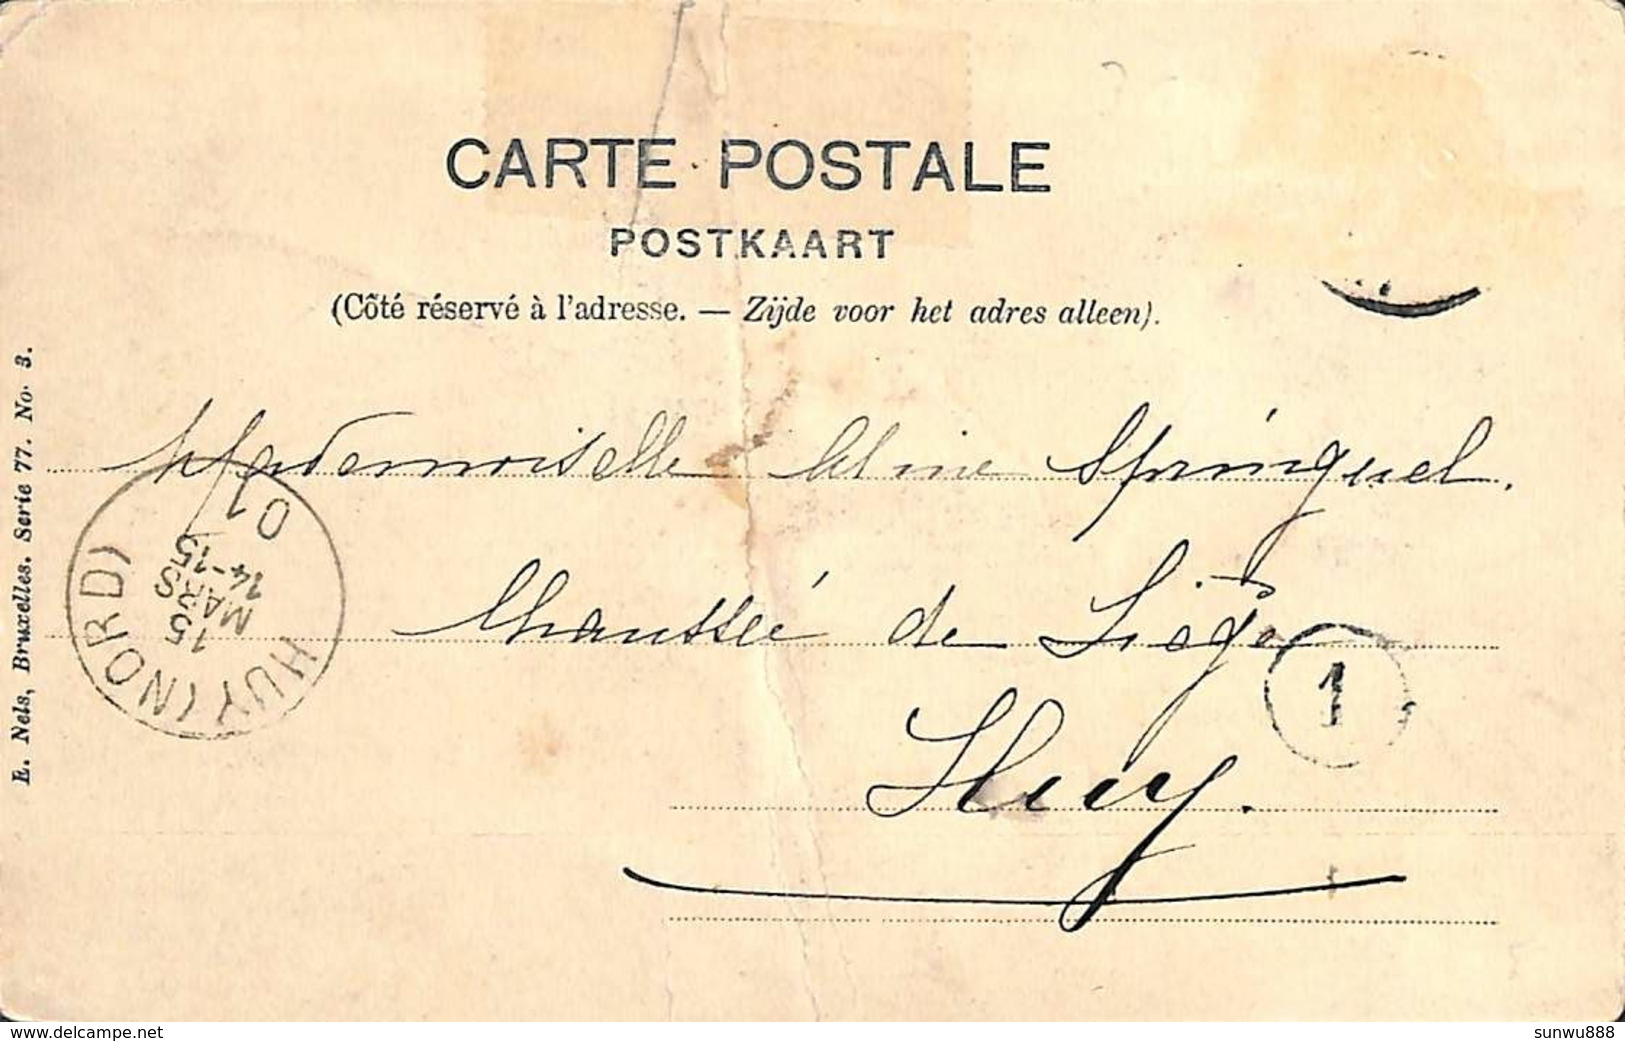 CARTE POSTALE
POSTKAART
(Côté réservé à l'adresse. — Zijde voor het adres alleen).
E. Nels, Bruxelles. Serie 77. No. 3.
Mademoiselle Springuel.
Chaussée de Liège
Huy.
HUY (NORD)
15
MARS
14-15
01
1
www.delcampe.net
sunwu888